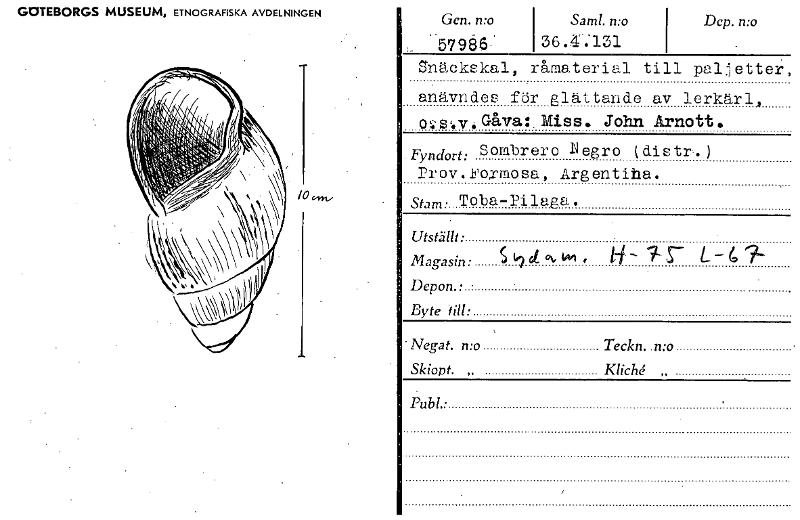 GÖTEBORGS MUSEUM, ETNOGRAFISKA AVDELNINGEN
10 cm
Gen. n:o Saml. n:o Dep. n:o
57986 36.4.131
Snäckskal, råmaterial till paljetter,
anävndes för glättande av lerkärl,
o.s.v. Gåva: Miss. John Arnott.
Fyndort: Sombrero Negro (distr.)
Prov. Formosa, Argentina.
Stam: Toba-Pilaga.
Utställt:
Magasin: Sydam. H-75 L-67
Depon.:
Byte till:
Negat. n:o Teckn. n:o
Skiopt. „ Kliché „
Publ.: